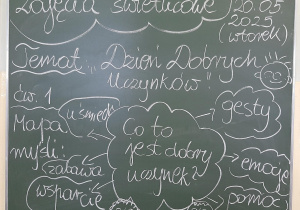 Zajęcia świetlicowe
20.05
2025
(wtorek)
Temat: "Dzień Dobrych
Uczynków"
ćw. 1
Mapa
myśli:
uśmiech
gesty
Co to
jest dobry
uczynek?
zabawa
emocje
wsparcie
pomoc